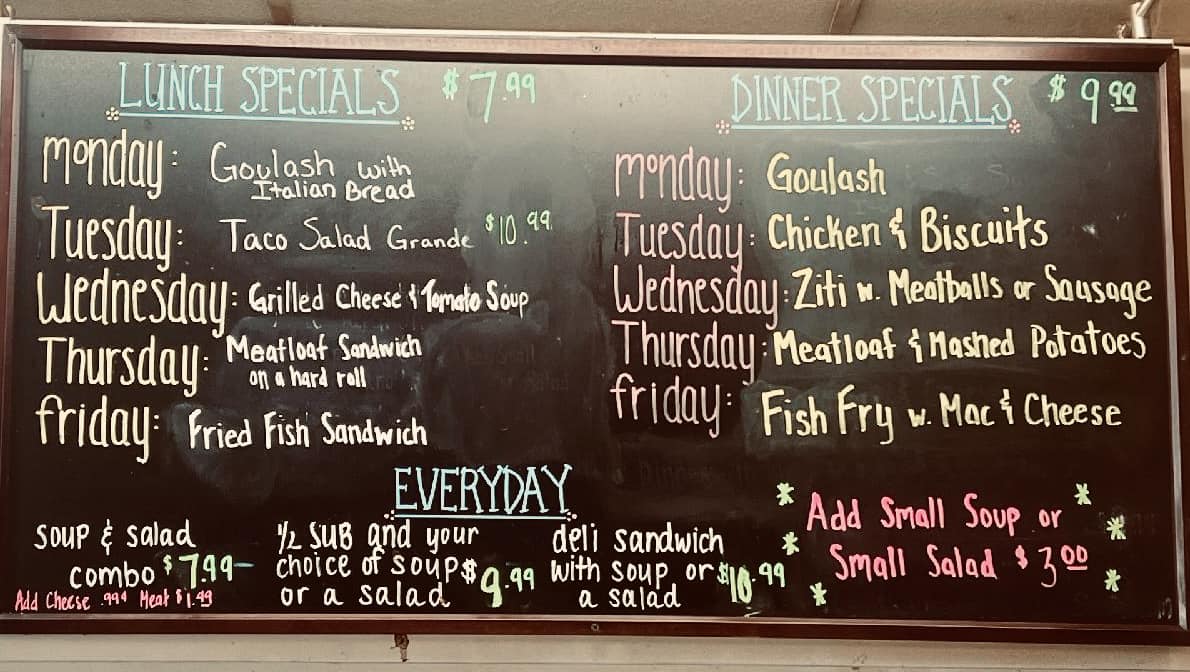 LUNCH SPECIALS $7.99
Monday: Goulash with
Italian Bread
Tuesday: Taco Salad Grande $10.99
Wednesday: Grilled Cheese & Tomato Soup
Thursday: Meatloaf Sandwich
on a hard roll
friday: Fried Fish Sandwich
DINNER SPECIALS $9.99
Monday: Goulash
Tuesday: Chicken & Biscuits
Wednesday: Ziti w. Meatballs or Sausage
Thursday: Meatloaf & Mashed Potatoes
friday: Fish Fry w. Mac & Cheese
EVERYDAY
soup & salad
combo $7.99
Add Cheese .99¢ Meat $1.49
1/2 SUB and your
choice of soup $9.99
or a salad
deli sandwich
with soup or $10.99
a salad
Add Small Soup or
Small Salad $3.00